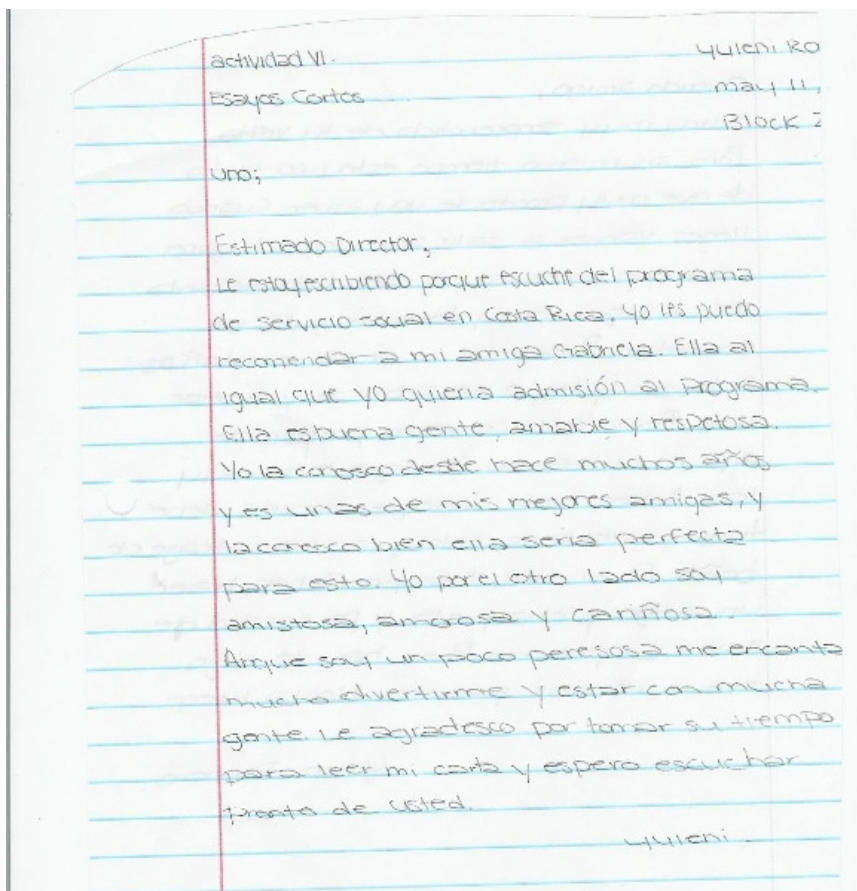 actividad VI. Yuleni Ro
Esayos Cortos May 11,
Block 2
uno;
Estimado Director,
Le estoy escribiendo porque escuche del programa
de servicio social en Costa Rica. Yo les puedo
recomendar a mi amiga Gabriela. Ella al
igual que yo quieria admisión al Programa.
Ella es buena gente, amable y respetosa.
Yo la conosco desde hace muchos años
y es unas de mis mejores amigas, y
la conosco bien ella seria perfecta
para esto. Yo por el otro lado soy
amistosa, amorosa y cariñosa.
Anque soy un poco peresosa me encanta
mucho divertirme y estar con mucha
gente. Le agradesco por tomar su tiempo
para leer mi carta y espero escuchar
pronto de usted.
Yuleni